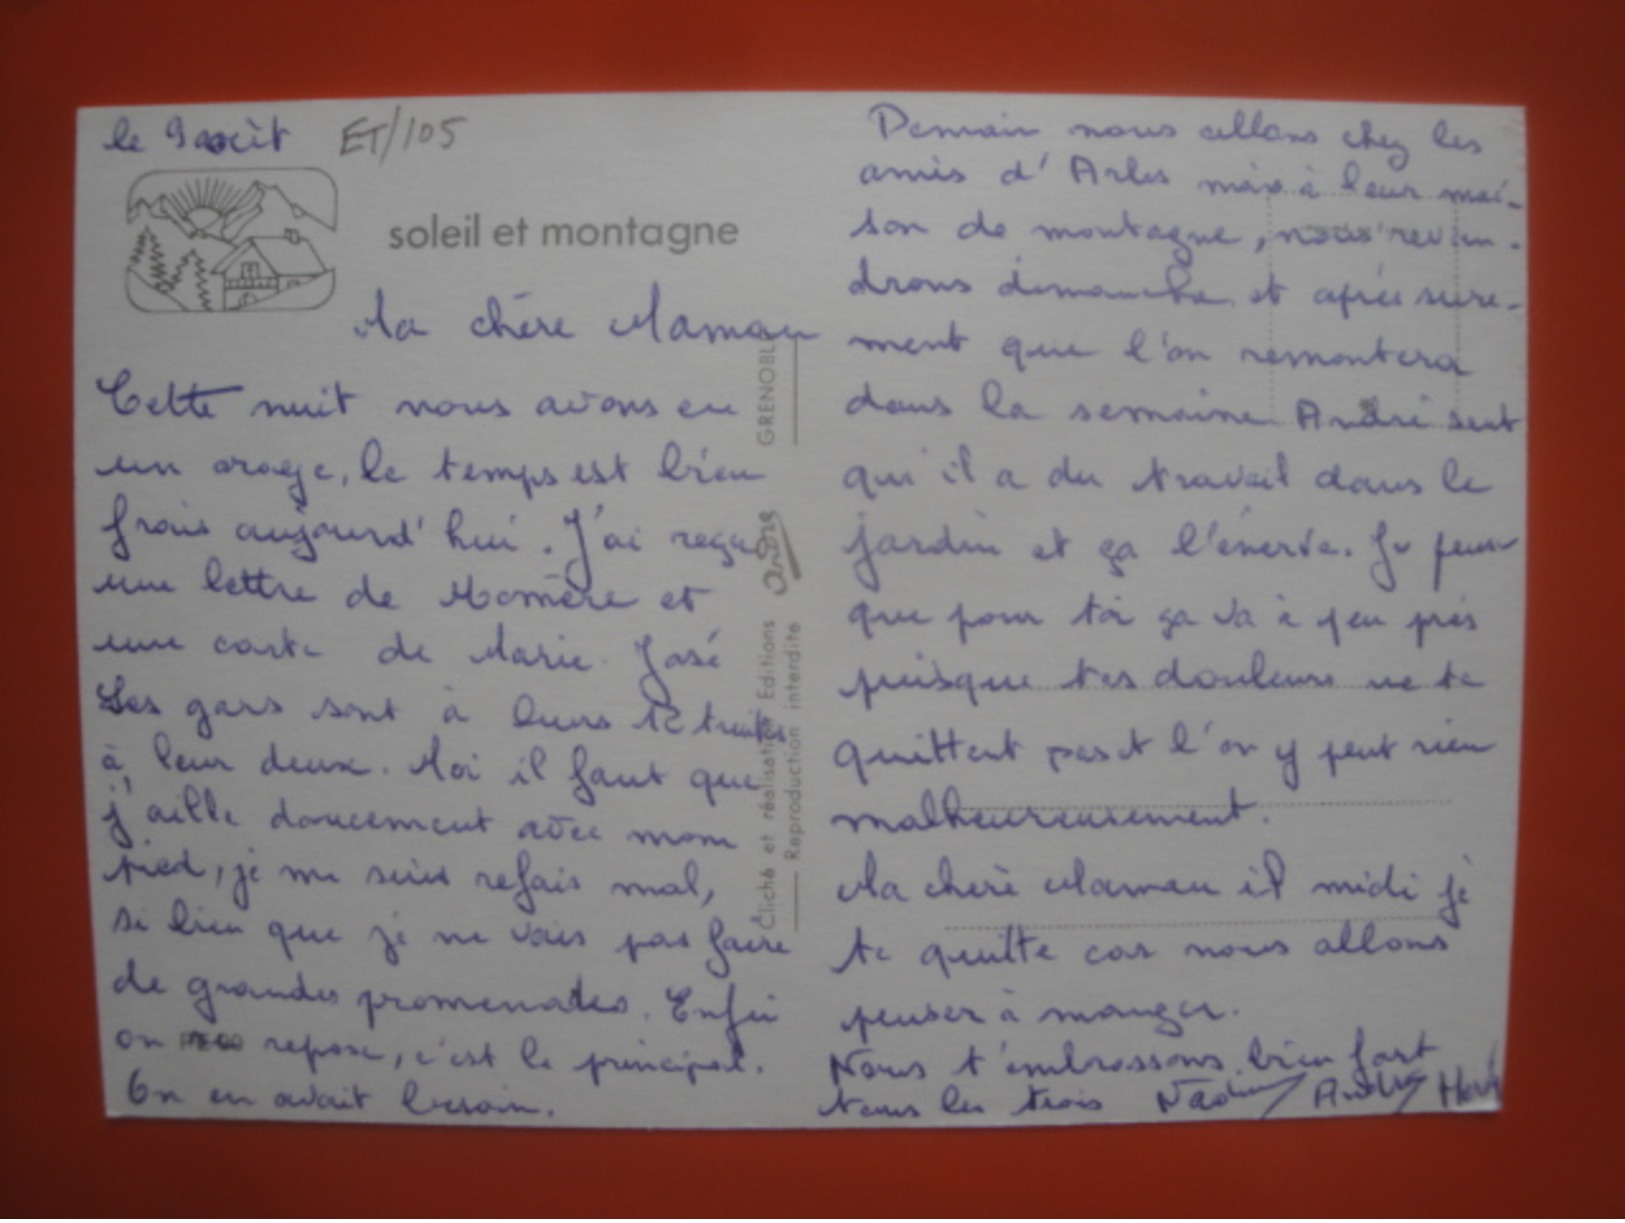 le 9 août ET/105
soleil et montagne
Ma chère Maman
Cette nuit nous avons eu
un orage, le temps est bien
frais aujourd'hui. J'ai reçu
une lettre de Momère et
une carte de Marie-José
Les gars sont à leurs truites
à leur deux. Moi il faut que
j'aille doucement avec mon
pied, je me suis refais mal,
si bien que je ne vais pas faire
de grandes promenades. Enfin
on repose, c'est le principal.
On en avait besoin.
GRENOBLE
André
Cliché et réalisation Editions
Reproduction interdite
Demain nous allons chez les
amis d'Arles mais à leur mai-
son de montagne, nous revien-
drons dimanche et après sure-
ment que l'on remontera
dans la semaine André sent
qu'il a du travail dans le
jardin et ça l'énerve. Je pense
que pour toi ça va à peu près
puisque tes douleurs ne te
quittent pas et l'on y peut rien
malheureusement.
Ma chère Maman il midi je
te quitte car nous allons
penser à manger.
Nous t'embrassons bien fort
tous les trois Nadine André Hervé